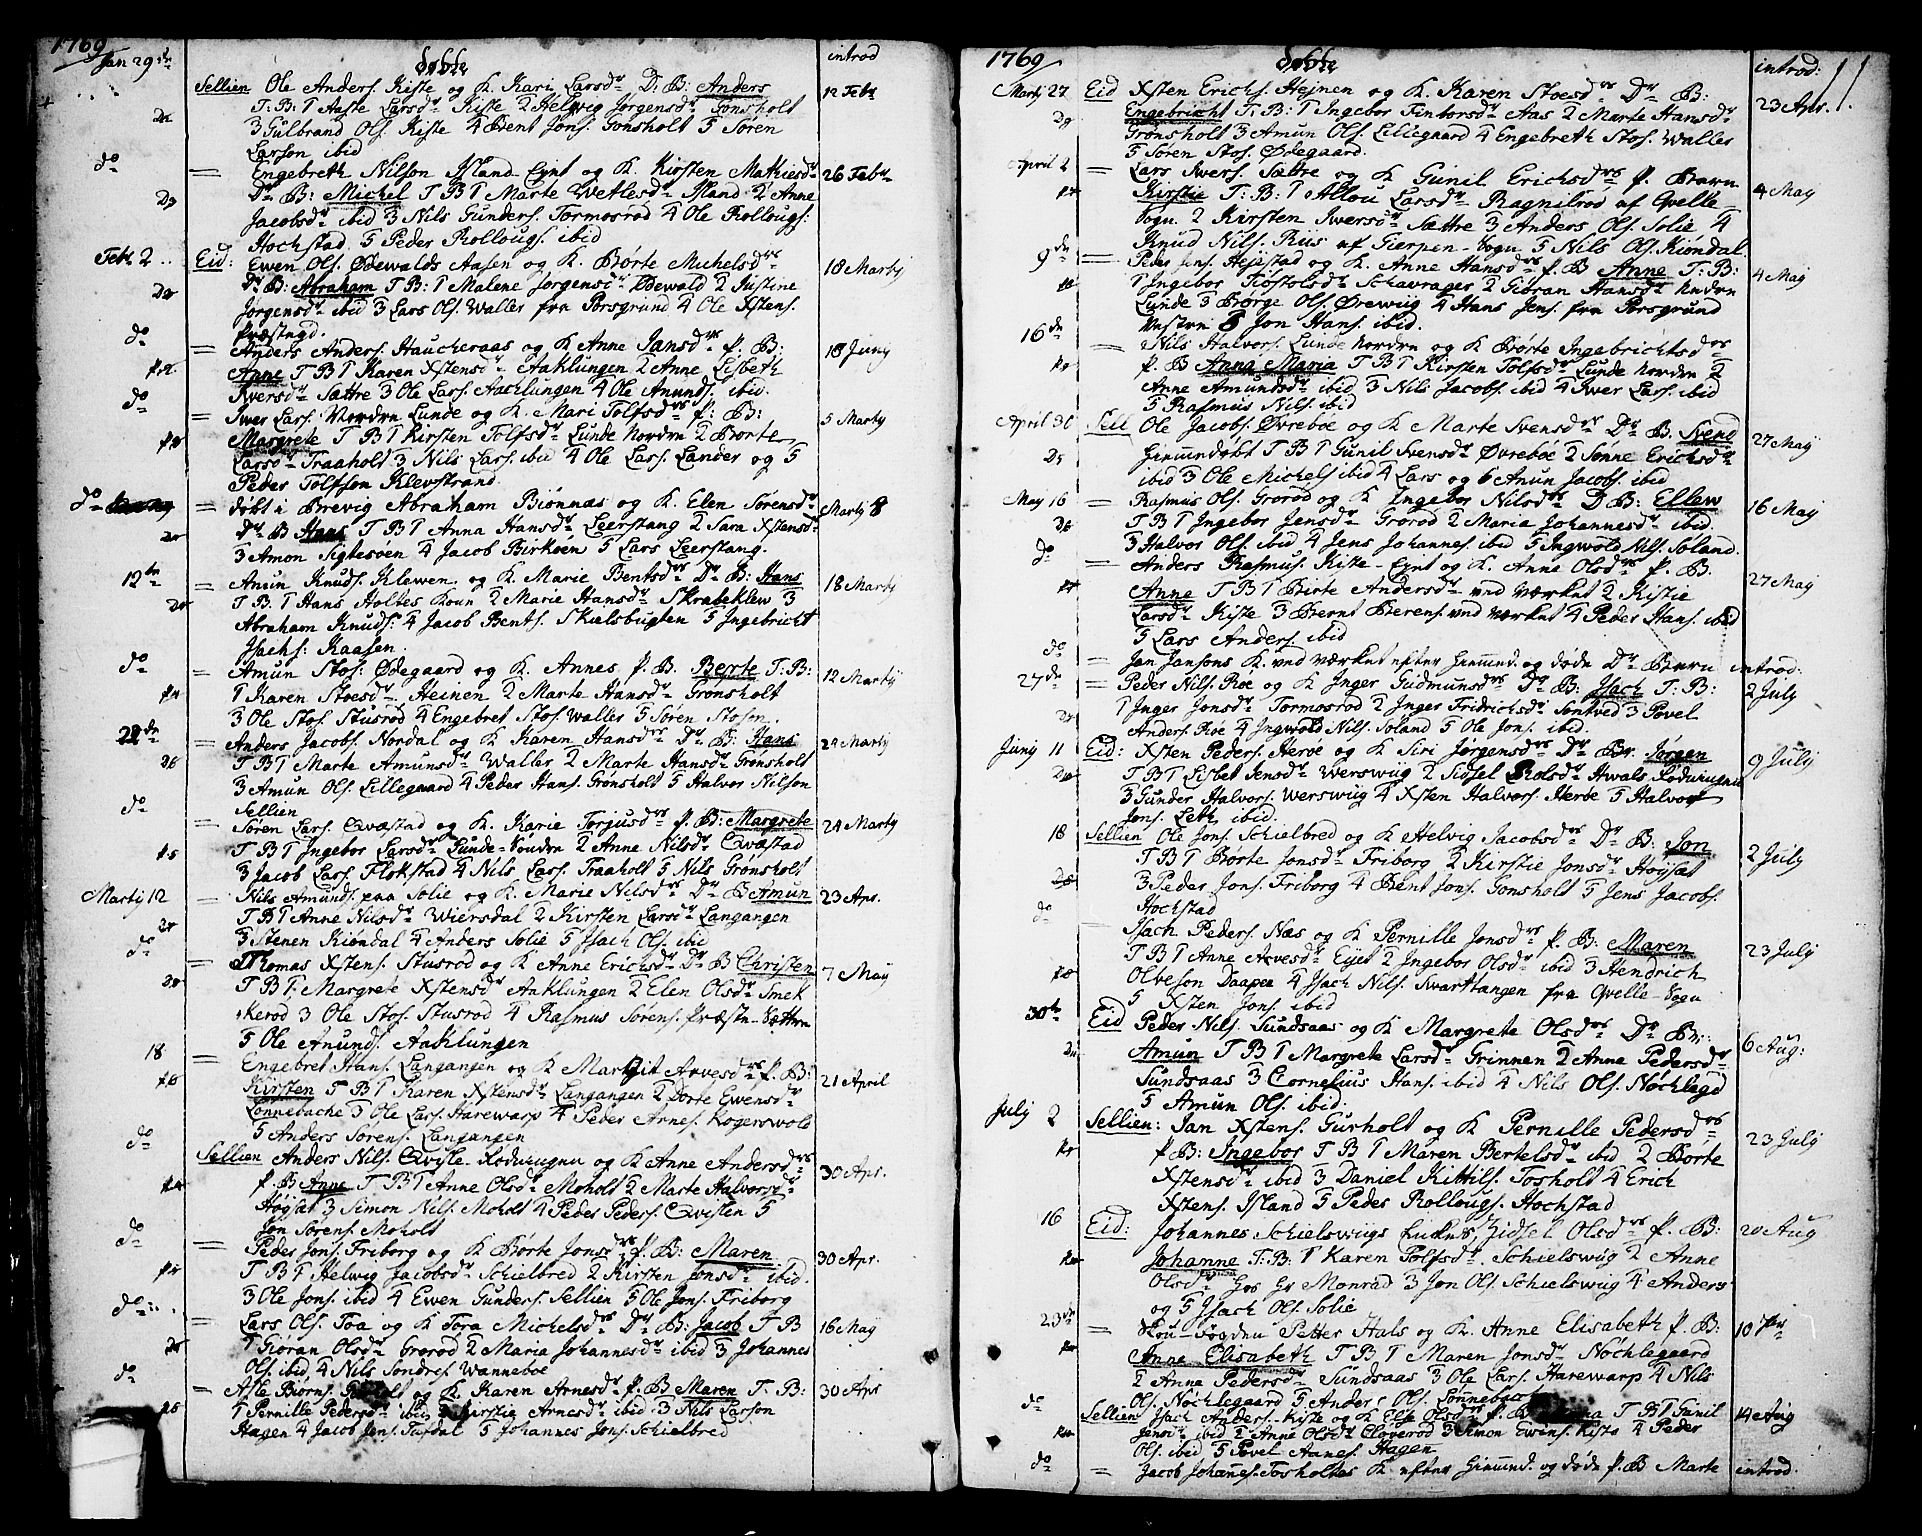 1769
Jan 29 døbte introd
Sellien Ole Anders. Kiste og K. Kari Larsdr Dr B: Anders 12 Febr
T: B: 1 Aaste Larsdr Kiste 2 Helwig Jørgensdr Gonsholt
3 Gulbrand Ols. Kiste 4 Bent Jons. Gonsholt 5 Søren
Larson ibid
do = Engebreth Nilson Island Eynt og K. Kirsten Mathiesdr 26 Febr
Dr B: Michel T B 1 Marte Wetlesdr Island 2 Anne
Jacobsdr ibid 3 Nils Gunders. Tormosrød 4 Ole Rollougs.
Hochstad 5 Peder Rollougs. ibid
Febr 2 Eid: Ewen Ols. Ødewalds Aasen og K. Børte Michelsdr 18 Martij
Dr B: Abraham T B: 1 Malene Jørgensdr Ødewald 2 Justine
Jørgensdr ibid 3 Lars Ols. Waller fra Porsgrund 4 Ole Xstens.
Præstegd.
do = Anders Anders. Haucheraas og K Anne Jansdr P. B: 18 Junij
Anne T B 1 Karen Xstensdr Aaklungen 2 Anne Lisbeth
Iwersdr Sættre 3 Ole Lars. Aaklungen 4 Ole Anunds. ibid.
do = Iwer Lars. Nordre Lunde og K. Mari Tolfsdr P: B: 5 Martij
Margrete T B 1 Kirsten Tolfsdr Lunde Nordre 2 Børte
Larsdr Traaholt 3 Nils Lars. ibid 4 Ole Lars. Lander og 5
Peder Tolfson Klevstrand.
do = døbt i Brevig Abraham Biønnæs og K. Elen Sørensdr Martij 8
Dr B Hans T B 1 Anna Hansdr Leerstang 2 Sara Xstensdr
3 Amon Sigtesøen 4 Jacob Birkøen 5 Lars Leerstang.
12te = Anun Knuds. Klewen og K. Marie Bentsdr Dr B: Hans 18 Martij
T. B. 1 Hans Holtes Koun 2 Marie Hansdr Skrabeklew 3
Abraham Knuds: 4 Jacob Bents. Skielsbugten 5 Ingebricht
Isachs: Kaasen.
do = Amun Stos. Ødegaard og K. Annes P. B. Berte T. B: 12 Martij
1 Karen Stoesdr Heinen 2 Marte Hansdr Grønsholt
3 Ole Stos. Stusrød 4 Engebret Stos. Waller 5 Søren Stosøn.
= Anders Jacobs. Nordal og K. Karen Hansdr Dr B: Hans 24 Martij
T B 1 Marte Amunsdr Waller 2 Marte Hansdr Grønsholt
3 Amun Ols. Lillegaard 4 Peder Hans. Grønsholt 5 Halvor Nilson
Sellien
do = Søren Lars. Qvæstad og K. Karie Torjusdr P. B: Margrete 24 Martij
T B 1 Ingebor Larsdr Lunde Søndre 2 Anne Nilsdr Qvæstad
3 Jacob Lars. Flokstad 4 Nils Lars. Traaholt 5 Nils Grønsholt
Martij 12 = Nils Amunds. paa Solie og K. Marie Nilsdr Dr B Amun 23 Apr.
T B 1 Anne Nilsdr Wiersdal 2 Kirsten Larsdr Langangen
3 Stenen Kiøndal 4 Anders Solie 5 Isach Ols. ibid
do = Thomas Xstens. Stusrød og K Anne Erichsdr Dr B Christen 7 May
T B 1 Margrete Xstensdr Aaklungen 2 Elen Olsdr Smek
kerød 3 Ole Stos. Stusrød 4 Rasmus Sørens. Præstn Sættre
5 Ole Anunds. Aaklungen
18 = Engebret Hans. Langangen og K Margit Arvesdr P. B: 21 April
Kirsten T B 1 Karen Xstensdr Langangen 2 Dorte Ewensdr
Lønnebache 3 Ole Lars. Harewarp 4 Peder Arnes. Kogerswold
5 Anders Sørens. Langangen
do Sellien Anders Nils. Qvisle og K Anne Andersdr 30 Apr.
P. B Anne T B 1 Anne Olsdr Moholt 2 Marte Halvorsdr
Høysæt 3 Simon Nils. Moholt 4 Peder Peders. Qvislen 5
Jon Sørens. Moholt
do = Peder Jons. Friborg og K Børte Jonsdr P. B: Maren 30 Apr.
T B 1 Helwig Jacobsdr Schielbred 2 Kirsten Jonsdr ibid.
3 Ole Jons. ibid 4 Ewen Gunders. Sellien 5 Ole Jons. Friborg
do = Lars Ols. Toa og K Tora Michelsdr Dr B: Jacob T B 16 May
1 Giøran Olsdr Grorød 2 Maria Johannesdr ibid 3 Johannes
Ols. ibid 4 Nils Sondres. Wanneboe
do = Asle Biørns. og K. Karen Arnesdr P. B Maren T. B: 30 Apr
1 Pernille Pedersdr ibid 2 Kirstie Arnesdr ibid 3 Nils Larson
Hagen 4 Jacob Jens. Tufdal 5 Johannes Jons. Schielbred
1769 døbte introd: 11
Martj 27 Eid Xsten Erichs. Hejnen og K. Karen Stoesdr Dr B: 23 Apr.
Engebricht T: B: 1 Ingebor Finborsdr Aas 2 Marte Hansdr
Grønsholt 3 Amun Ols. Lillegaard 4 Engebreth Stos. Waller
5 Søren Stos. Ødegaard.
April 2 = Lars Iwers. Sættre og K Gunil Erichsdr P. Barn 4 May
Kirstie T: B: 1 Allou Larsdr Ragnilrød af Qvelle
Sogn. 2 Kirsten Iwersdr Sættre 3 Anders Ols. Solie 4
Knud Nils. Riis af Gierpen Sogn 5 Nils Ols. Kiøndal
9de = Peder Jens. Hejestad og K. Anne Hansdr P. B Anne T: B: 4 May
1 Ingebor Tiøstolsdr Schavrager 2 Giøran Hansdr Nedre
Lunde 3 Børge Ols. Ørewiig 4 Hans Jens. fra Porsgrund
Vestre 5 Jon Hans. ibid.
16de = Nils Halvors. Lunde Nordre og K Børte Ingebrichtsdr
P. B Anna Maria T B 1 Kirsten Tolfsdr Lunde Nordre 2
Anne Amundsdr ibid 3 Nils Jacobs. ibid 4 Iwer Lars. ibid
5 Rasmus Nils. ibid
April 30 Sell Ole Jacobs. Øvreboe og K Marte Svensdr Dr B. Svend 27 May
Hiemmedøbt T B 1 Gunil Svensdr Øvreboe 2 Sønne Erichsdr
ibid 3 Ole Michels ibid 4 Lars og 5 Anun Jacobs. ibid
May 16 = Rasmus Ols. Grorød og K Ingebor Nilsdr D B: Ellew 16 May
T B 1 Ingebor Jensdr Grorød 2 Maria Johannesdr ibid.
3 Halvor Ols. ibid 4 Jens Johannes. ibid 5 Ingwold Nils. Soland.
do = Anders Rasmus. Kiste Eynt og K. Anne Olsdr P. B. 27 May
Anne T B 1 Birte Andersdr ved Værket 2 Kistie
Larsdr Kiste 3 Bernt Berens. ved Værket 4 Peder Hans. ibid
5 Lars Anders. ibid
do = Jan Jansons K. ved Værket efter Hiemmed. og døde Dr Barn introd:
27de = Peder Nils. Røe og K Inger Gudmunsdr Dr B: Isach T: B: 2 July
1 Inger Jonsdr Tormosrød 2 Inger Fridrichsdr Sontved 3 Povel
Anders. Røe 4 Ingwold Nils. Soland 5 Ole Jons. ibid.
Junij 11 Eid: Xsten Peders. Herøe og K Siri Jørgensdr Dr Br. Jørgen 9 July
T B 1 Lisbet Jensdr Werswiig 2 Sidsel Rolsdr Hwals
3 Gunder Halvors. Werswiig 4 Xsten Halvors. Herøe 5 Halvor
Jons. Leth ibid.
18 Sellien Ole Jons. Schielbred og K Helvig Jacobsdr Dr B: Jon 2 July
T B 1 Børte Jonsdr Friborg 2 Kirstie Jonsdr Høysæt
3 Peder Jons. Friborg 4 Bent Jons. Gonsholt 5 Jens Jacobs.
Hochstad
do Isach Peders. Næs og K Pernille Jonsdr P. B: Maren 23 July
T B 1 Anne Arvesdr Eyet 2 Ingebor Olsdr ibid 3 Hendrich
Olveson Daapen 4 Isach Nils. Swarttangen fra Qvelle Sogn
5 Xsten Jons. ibid
30te Eid Peder Nils. Sundsaas og K Margrete Olsdr Dr Br: 6 Aug:
Amun T B 1 Margrete Larsdr Grinnen 2 Anne Pedersdr
Sundsaas 3 Cornelius Hans. ibid 4 Nils Ols. Nøchlegd
5 Amun Ols. ibid.
July 2 Sellien: Jan Xstens. Gurholt og K Pernille Pedersdr 23 July
P. B: Ingebor T B 1 Maren Bertelsdr ibid 2 Børte
Xstensdr ibid 3 Daniel Kittils. Tosholt 4 Erich
Xstens. Island 5 Peder Rollougs. Hochstad
16 Eid: Johannes Schielswiigs Zidsel Olsdr P. B: 20 Aug
Johanne T: B: 1 Karen Tolfsdr Schielswiig 2 Anne
Olsdr hos Hr Monrad 3 Jon Ols. Schielswiig 4 Anders
og 5 Isach Ols. Solie
23de = Skou-fogden Petter Hals og K. Anne Elisabeth P. B: 10
Anne Elisabeth T B 1 Maren Jonsdr Nøchlegaard
2 Anne Pedersdr Sundsaas 3 Ole Lars. Harewarp 4 Nils
Ols. Nøchlegaard 5 Anders Ols. Lønnebach
do Sellien Isach Anders. Kiste og K Else Olsdr P. B T B 1 Gunil 14 Aug
Jensdr ibid 2 Anne Olsdr Cloverød 3 Simon Ewens. Kiste 4 Peder
Ols. ibid 5 Povel Hanes. Hagen
do = Jacob Johannes. Tosholtes K efter Hiemmed. og døde P. B Marte introd.